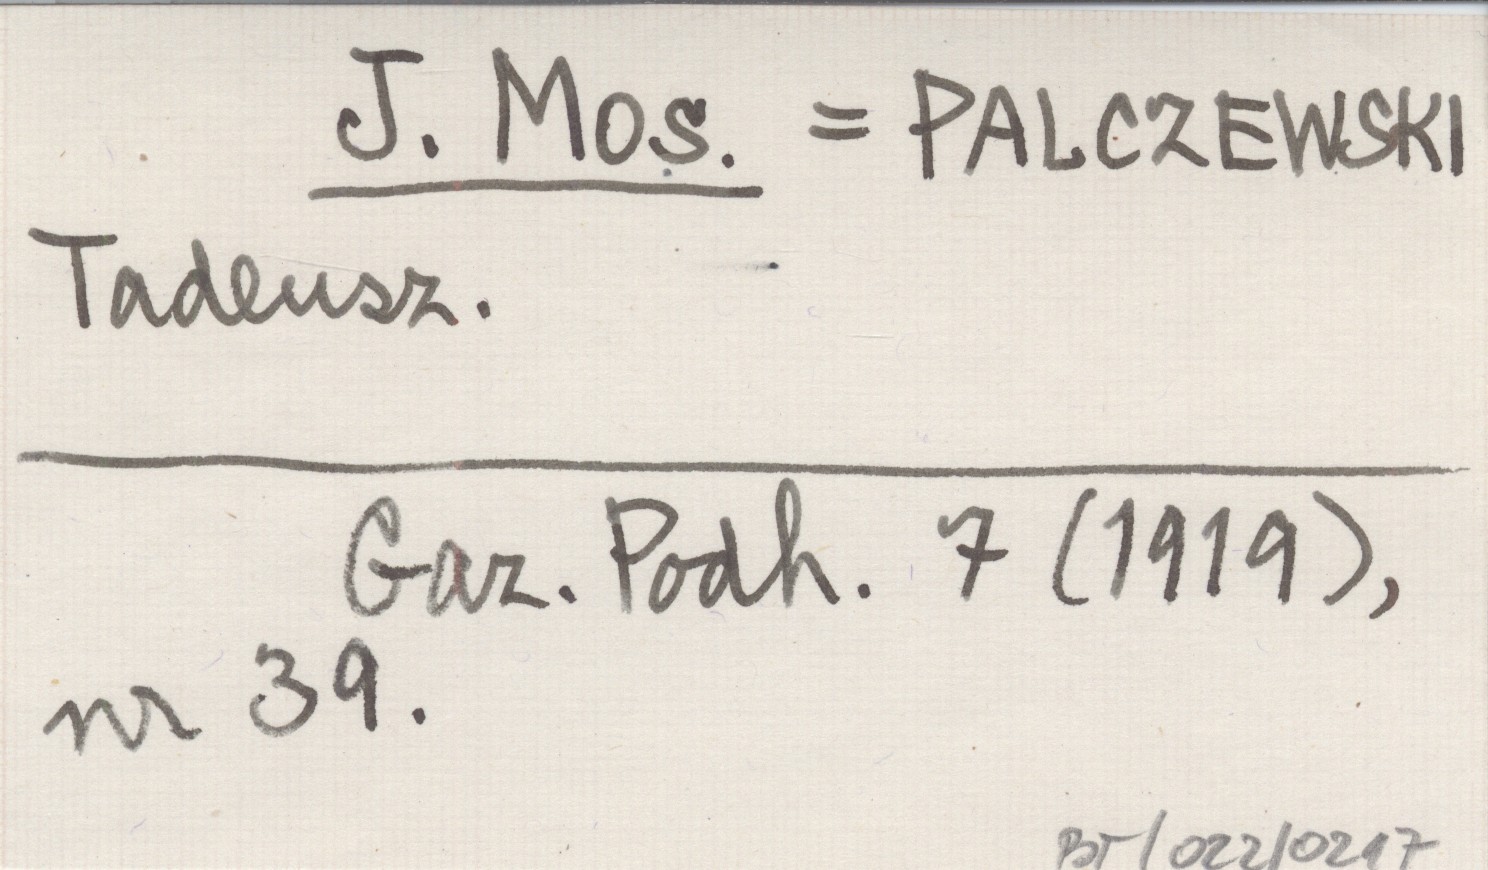 J. Mos. = PALCZEWSKI
Tadeusz.
Gaz. Podh. 7 (1919),
nr 39.
BT/022/0217